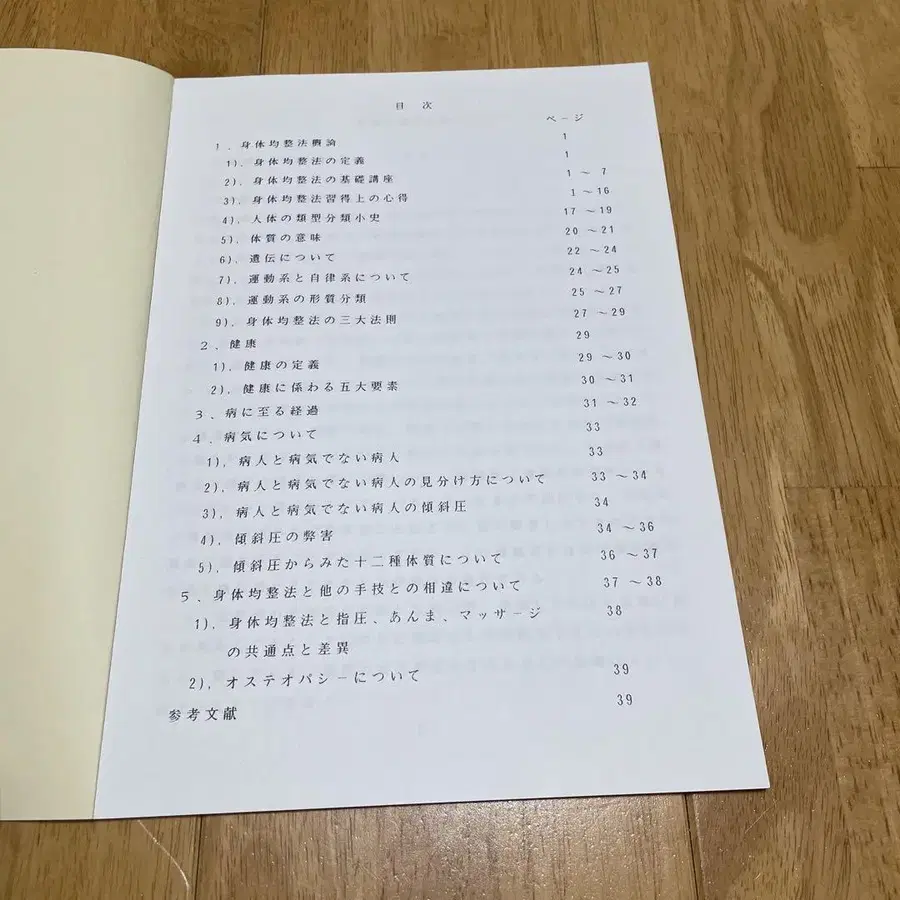 目 次
ページ
1．身体均整法概論 1
1)．身体均整法の定義 1
2)．身体均整法の基礎講座 1 ～ 7
3)．身体均整法習得上の心得 1 ～16
4)．人体の類型分類小史 17 ～19
5)．体質の意味 20 ～21
6)．遺伝について 22 ～24
7)．運動系と自律系について 24 ～25
8)．運動系の形質分類 25 ～27
9)．身体均整法の三大法則 27 ～29
2．健康 29
1)．健康の定義 29 ～30
2)．健康に係わる五大要素 30 ～31
3．病に至る経過 31 ～32
4．病気について 33
1)．病人と病気でない病人 33
2)．病人と病気でない病人の見分け方について 33 ～34
3)．病人と病気でない病人の傾斜圧 34
4)．傾斜圧の弊害 34 ～36
5)．傾斜圧からみた十二種体質について 36 ～37
5．身体均整法と他の手技との相違について 37 ～38
1)．身体均整法と指圧、あんま、マッサージ 38
の共通点と差異
2)．オステオパシーについて 39
参考文献 39